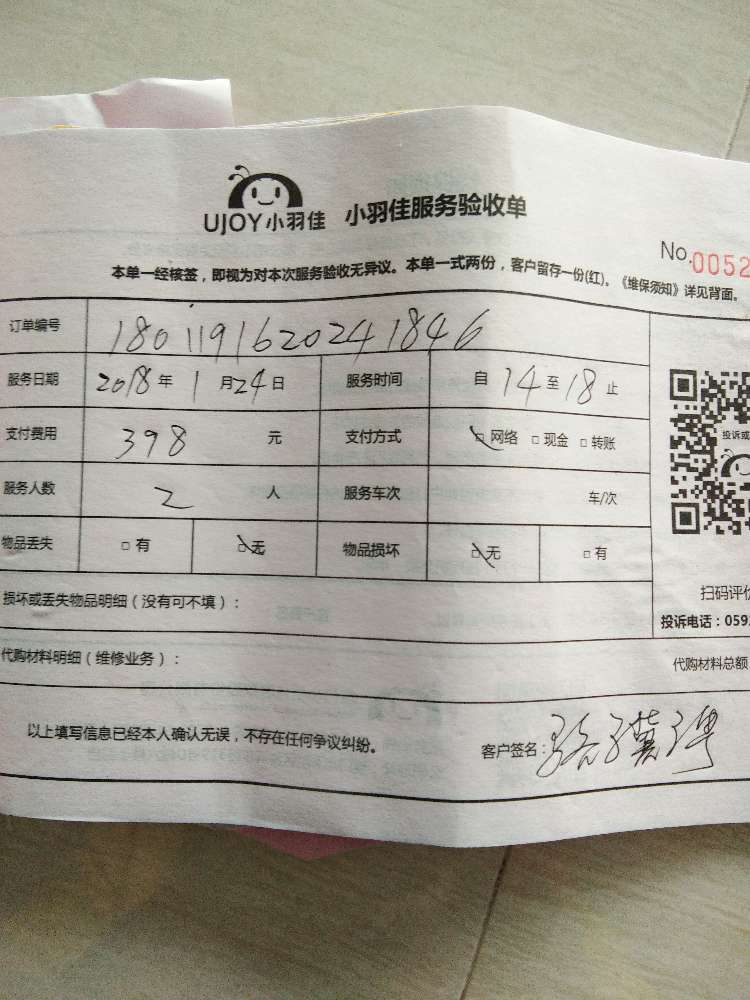 UJOY小羽佳 小羽佳服务验收单
No.0052
本单一经核签，即视为对本次服务验收无异议。本单一式两份，客户留存一份(红)。《维保须知》详见背面。
订单编号 1801191620241846
服务日期 2018年1月24日 服务时间 自14至18止
支付费用 398元 支付方式 □网络 □现金 □转账
投诉或
服务人数 2人 服务车次 车/次
物品丢失 □有 □无 物品损坏 □无 □有
扫码评价
损坏或丢失物品明细（没有可不填）：
投诉电话：059
代购材料明细（维修业务）：
代购材料总额
以上填写信息已经本人确认无误，不存在任何争议纠纷。
客户签名：